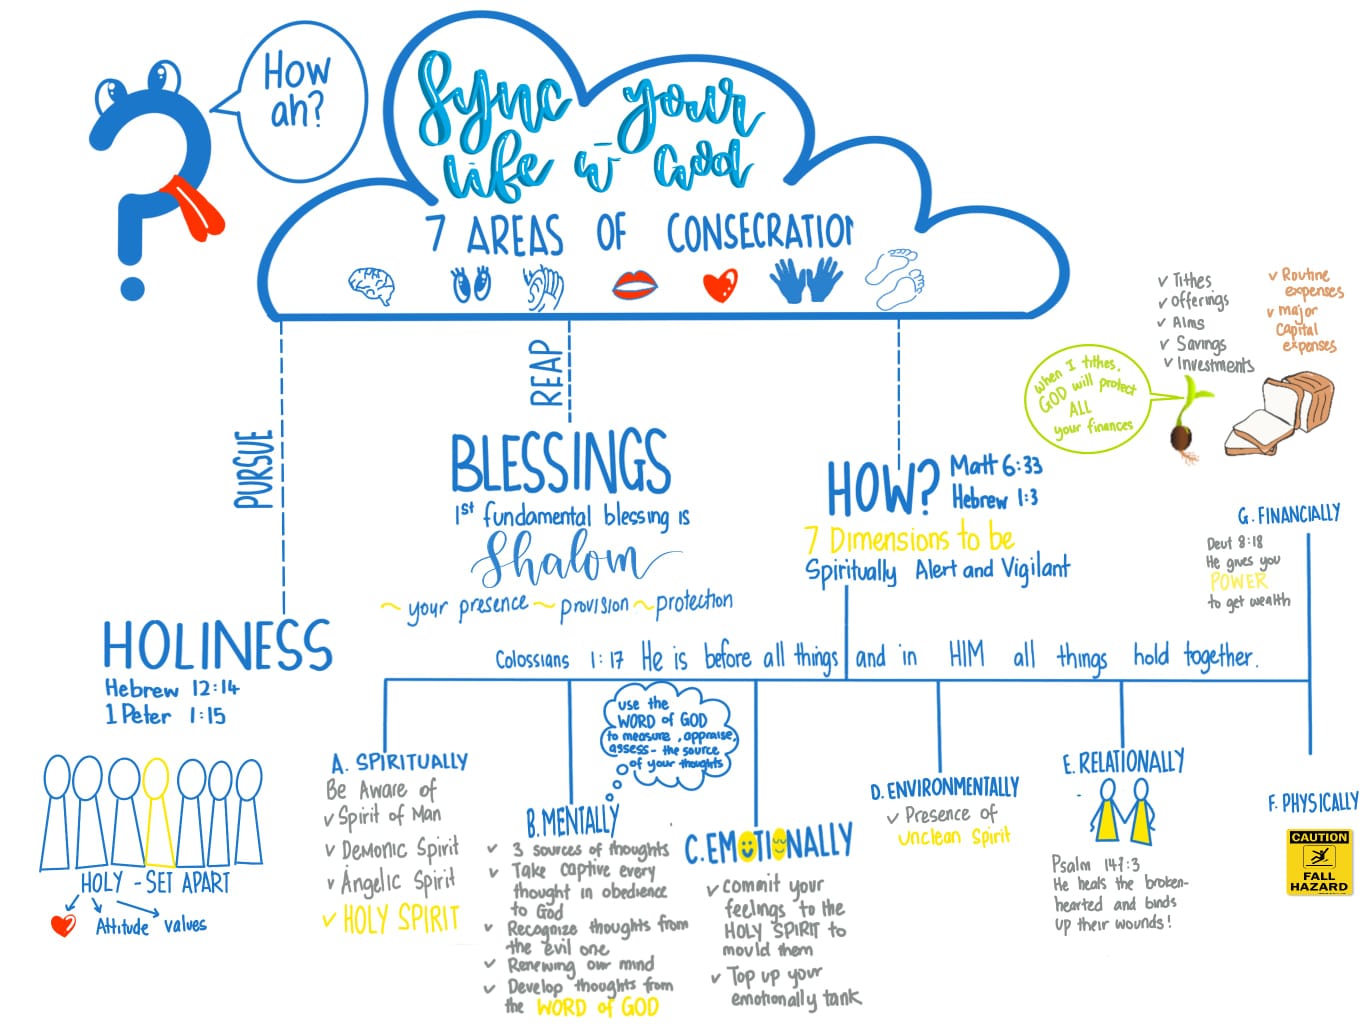 How
ah?
Sync your
life w̄ God
7 AREAS OF CONSECRATION
PURSUE
HOLINESS
Hebrew 12:14
1 Peter 1:15
HOLY - SET APART
Attitude
values
REAP
BLESSINGS
1st fundamental blessing is
Shalom
~ your presence ~ provision ~ protection
HOW?
Matt 6:33
Hebrew 1:3
7 Dimensions to be
Spiritually Alert and Vigilant
Colossians 1:17 He is before all things and in HIM all things hold together.
A. SPIRITUALLY
Be Aware of
✓ Spirit of Man
✓ Demonic Spirit
✓ Angelic Spirit
✓ HOLY SPIRIT
use the
WORD of GOD
to measure, appraise,
assess - the source
of your thoughts
B. MENTALLY
✓ 3 sources of thoughts
✓ Take captive every
thought in obedience
to God
✓ Recognize thoughts from
the evil one
✓ Renewing our mind
✓ Develop thoughts from
the WORD of GOD
C. EMOTIONALLY
✓ commit your
feelings to the
HOLY SPIRIT to
mould them
✓ Top up your
emotionally tank
D. ENVIRONMENTALLY
✓ Presence of
unclean Spirit
E. RELATIONALLY
Psalm 147:3
He heals the broken-
hearted and binds
up their wounds!
F. PHYSICALLY
CAUTION
FALL
HAZARD
G. FINANCIALLY
Deut 8:18
He gives you
POWER
to get wealth
when I tithes.
GOD will protect
ALL
your finances
✓ Tithes
✓ offerings
✓ Alms
✓ Savings
✓ Investments
✓ Routine
expenses
✓ major
capital
expenses